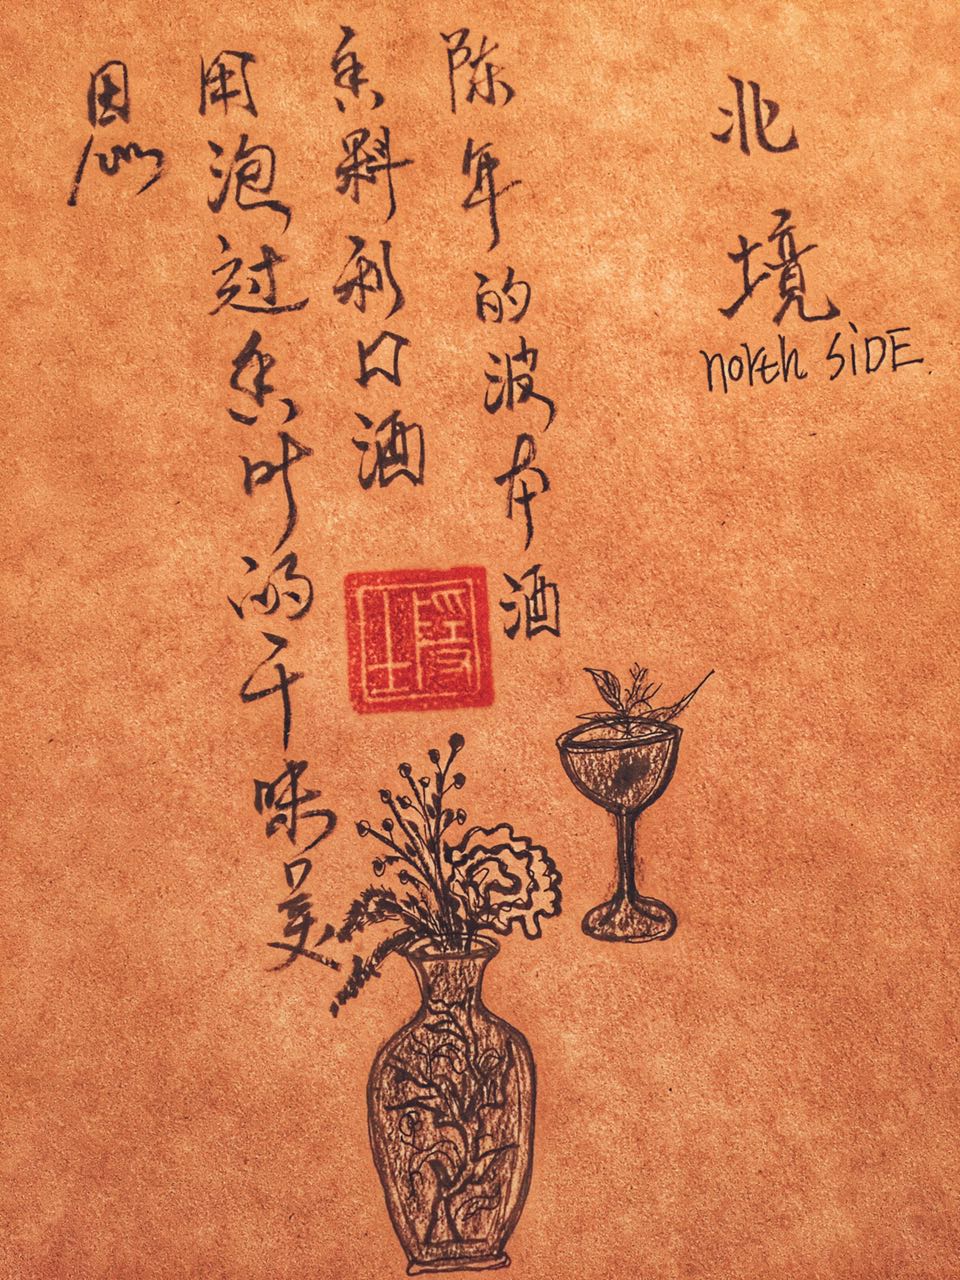 北境
north SiDE.
陈年的波本酒
香料利口酒
用泡过香叶的干味美
思